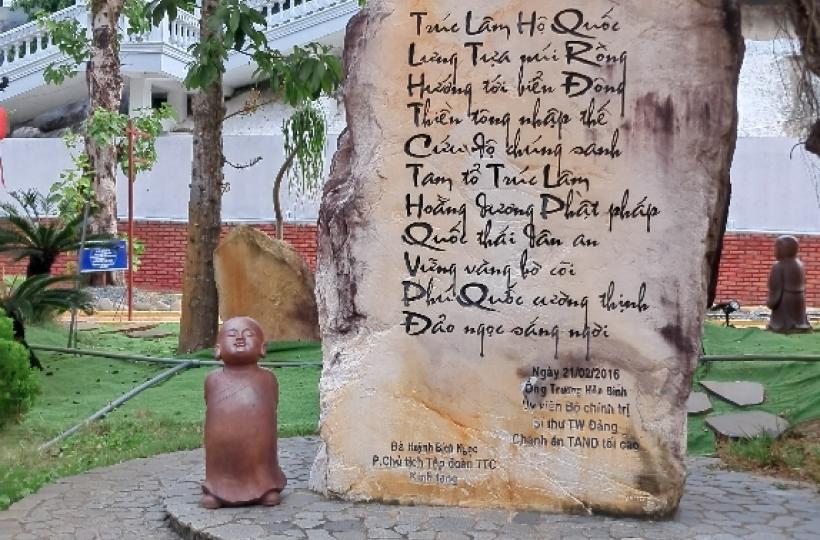 Trúc Lâm Hộ Quốc
Lưng Tựa núi Rồng
Hướng tới biển Đông
Thiền tông nhập thế
Cứu độ chúng sanh
Tam tổ Trúc Lâm
Hoằng dương Phật pháp
Quốc thái dân an
Vững vàng bờ cõi
Phú Quốc cường thịnh
Đảo ngọc sáng ngời
Ngày 21/02/2016
Ông Trương Hòa Bình
Ủy viên Bộ chính trị
Bí thư TW Đảng
Chánh án TAND tối cao
Bà Huỳnh Bích Ngọc
P.Chủ tịch Tập đoàn TTC
Kính tặng